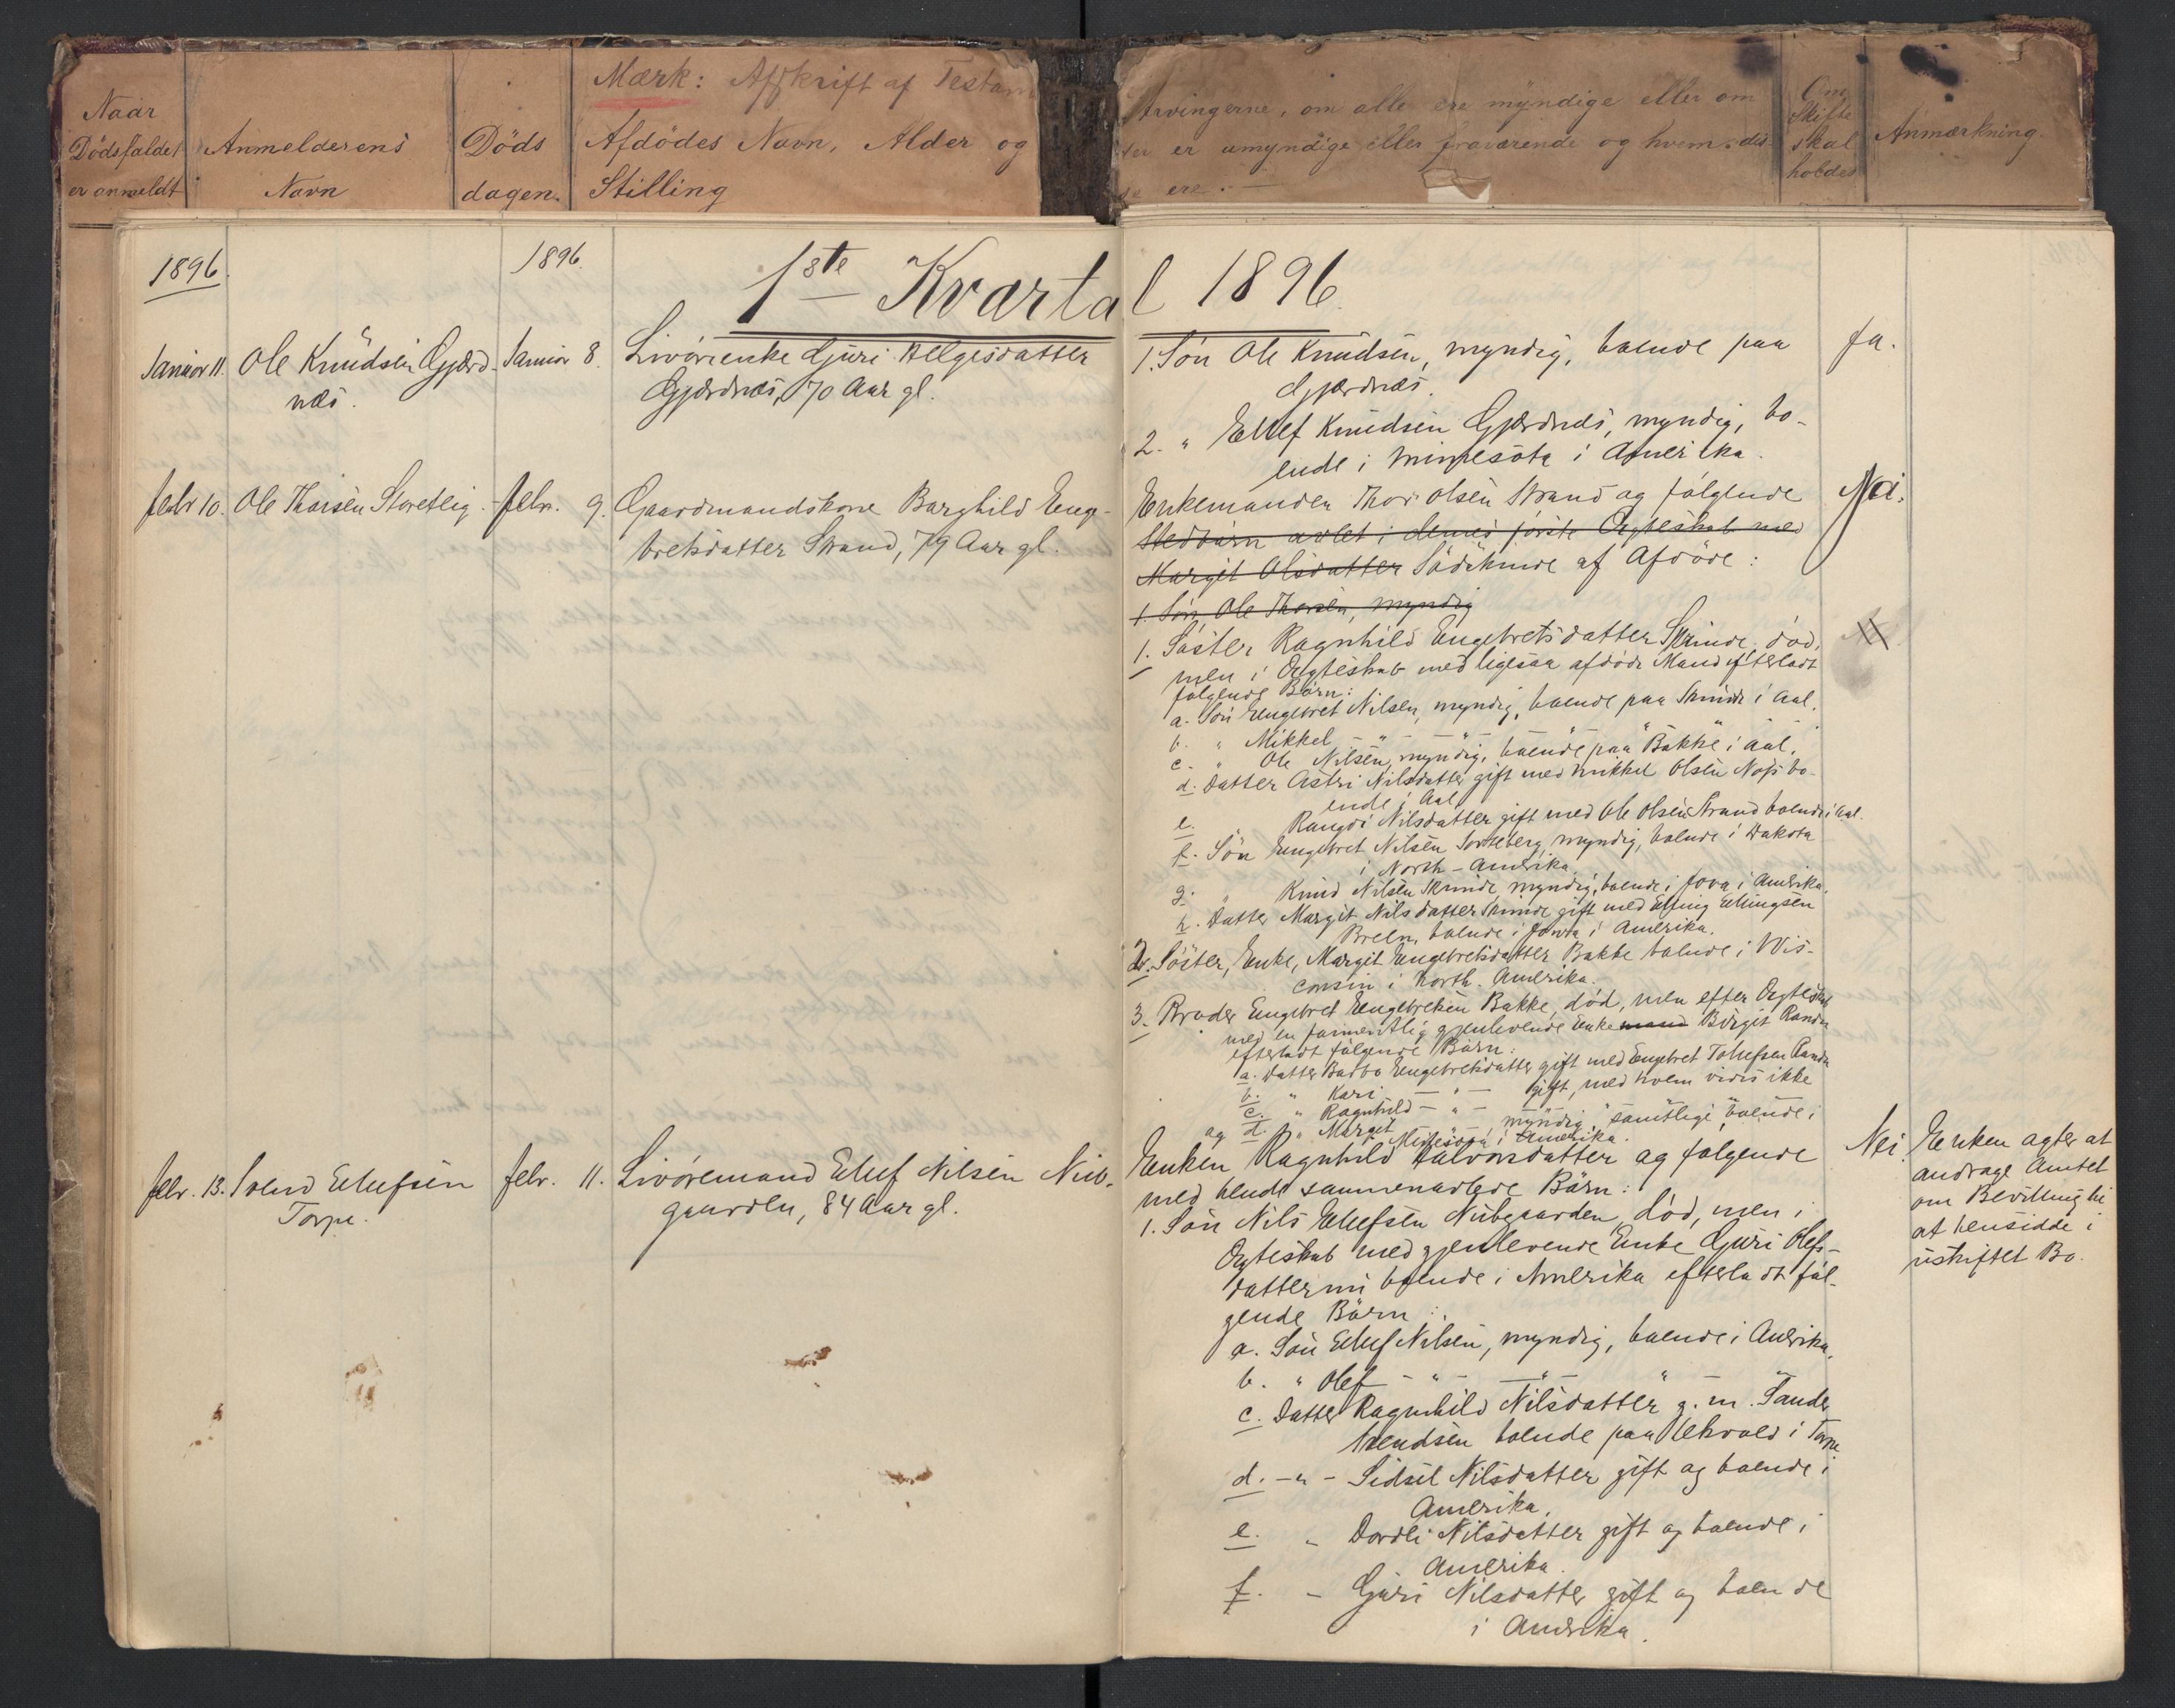 Mærk: Afskrift af Testam
Naar
Dödsfaldet
er anmeldt
Anmelderens
Navn
Döds
dagen.
Afdödes Navn, Alder og
Stilling
Arvingerne, om alle ere myndige eller om
er umyndige eller fraværende og hvem dis
ere. —
Om
Skifte
skal
holdes
Anmærkning.
1896.
1896.
1ste Kvartal 1896.
Januar 11.
Ole Knudsen Gjærd-
næs.
Januar 8.
Livörenke Guri Helgesdatter
Gjærdnæs, 70 Aar gl.
1. Sön Ole Knudsen, myndig, boende paa
Gjærdnæs.
2. " Ellef Knudsen Gjærdnæs, myndig, bo-
ende i Minnesota i Amerika.
Ja.
febr 10.
Ole Thorsen Storetlig.
febr. 9.
Gaardmandskone Barghild Enge-
bretsdatter Strand, 79 Aar gl.
Enkemanden Thor Olsen Strand og fölgende
Stedbörn avlet i dennes förste Ægteskab med
Margit Olsdatter Södskinde af Afdöde:
1. Sön Ole Thorsen, myndig
1. Söster Ragnhild Engebretsdatter Skrinde, död,
men i Ægteskab med ligesaa afdöde Mand efterladt
fölgende Börn:
a. Sön Engebret Nilsen, myndig, boende paa Skrinde i Aal.
b. " Mikkel — " — " — " —
c. " Ole Nilsen, myndig, boende paa Bakke i Aal.
d. Datter Astri Nilsdatter gift med Mikkel Olsen Næss bo-
ende i Aal.
e. Rangdi Nilsdatter gift med Ole Olsen Strand boende i Aal.
f. Sön Engebret Nilsen Sorteberg, myndig, boende i Dakota
i North-Amerika.
g. " Knud Nilsen Skrinde myndig, boende i Jova i Amerika.
h. Datter Margit Nilsdatter Skrinde gift med Elling Ellingsen
Breln, boende i Jowa i Amerika.
2. Söster, Enke, Margit Engebretsdatter Bakke boende i Wis-
consin i North. Amerika.
3. Broder Engebret Engebretsen Bakke, död, men efter Ægteskab
med en formentlig gjenlevende Enkemand Birgit Randn
efterladt fölgende Börn:
a. Datter Barbo Engebretsdatter gift med Engebret Tollefsen Randn
b. " Kari — " — gift, med hvem vides ikke
c. " Ragnhild — " — " "
og d. " Marget — " — myndig, samtlige boende i
Minesota i Amerika.
Nei.
febr. 13.
Svend Ellefsen
Torpe.
febr. 11.
Livöremand Ellef Nilsen Nub-
gaarden, 84 Aar gl.
Enken Ragnhild Halvorsdatter og fölgende
med hende sammenavlede Börn:
1. Sön Nils Ellefsen Nubgaarden, död, men i
Ægteskab med gjenlevende Enke Guri Olefs-
datter nu boende i Amerika efterladt föl-
gende Börn:
a. Sön Ellef Nilsen, myndig, boende i Amerika.
b. " Olef — " — — " — " —
c. Datter Ragnhild Nilsdatter g. m. Sander
Svendsen boende paa Ukvald i Torpe
d. — " — Sidsel Nilsdatter gift og boende i
Amerika.
e. " Dordli Nilsdatter gift og boende i
Amerika.
f. — Guri Nilsdatter gift og boende
i Amerika.
Nei.
Enken agter at
andrage Amtet
om Bevilling til
at hensidde i
uskiftet Bo.